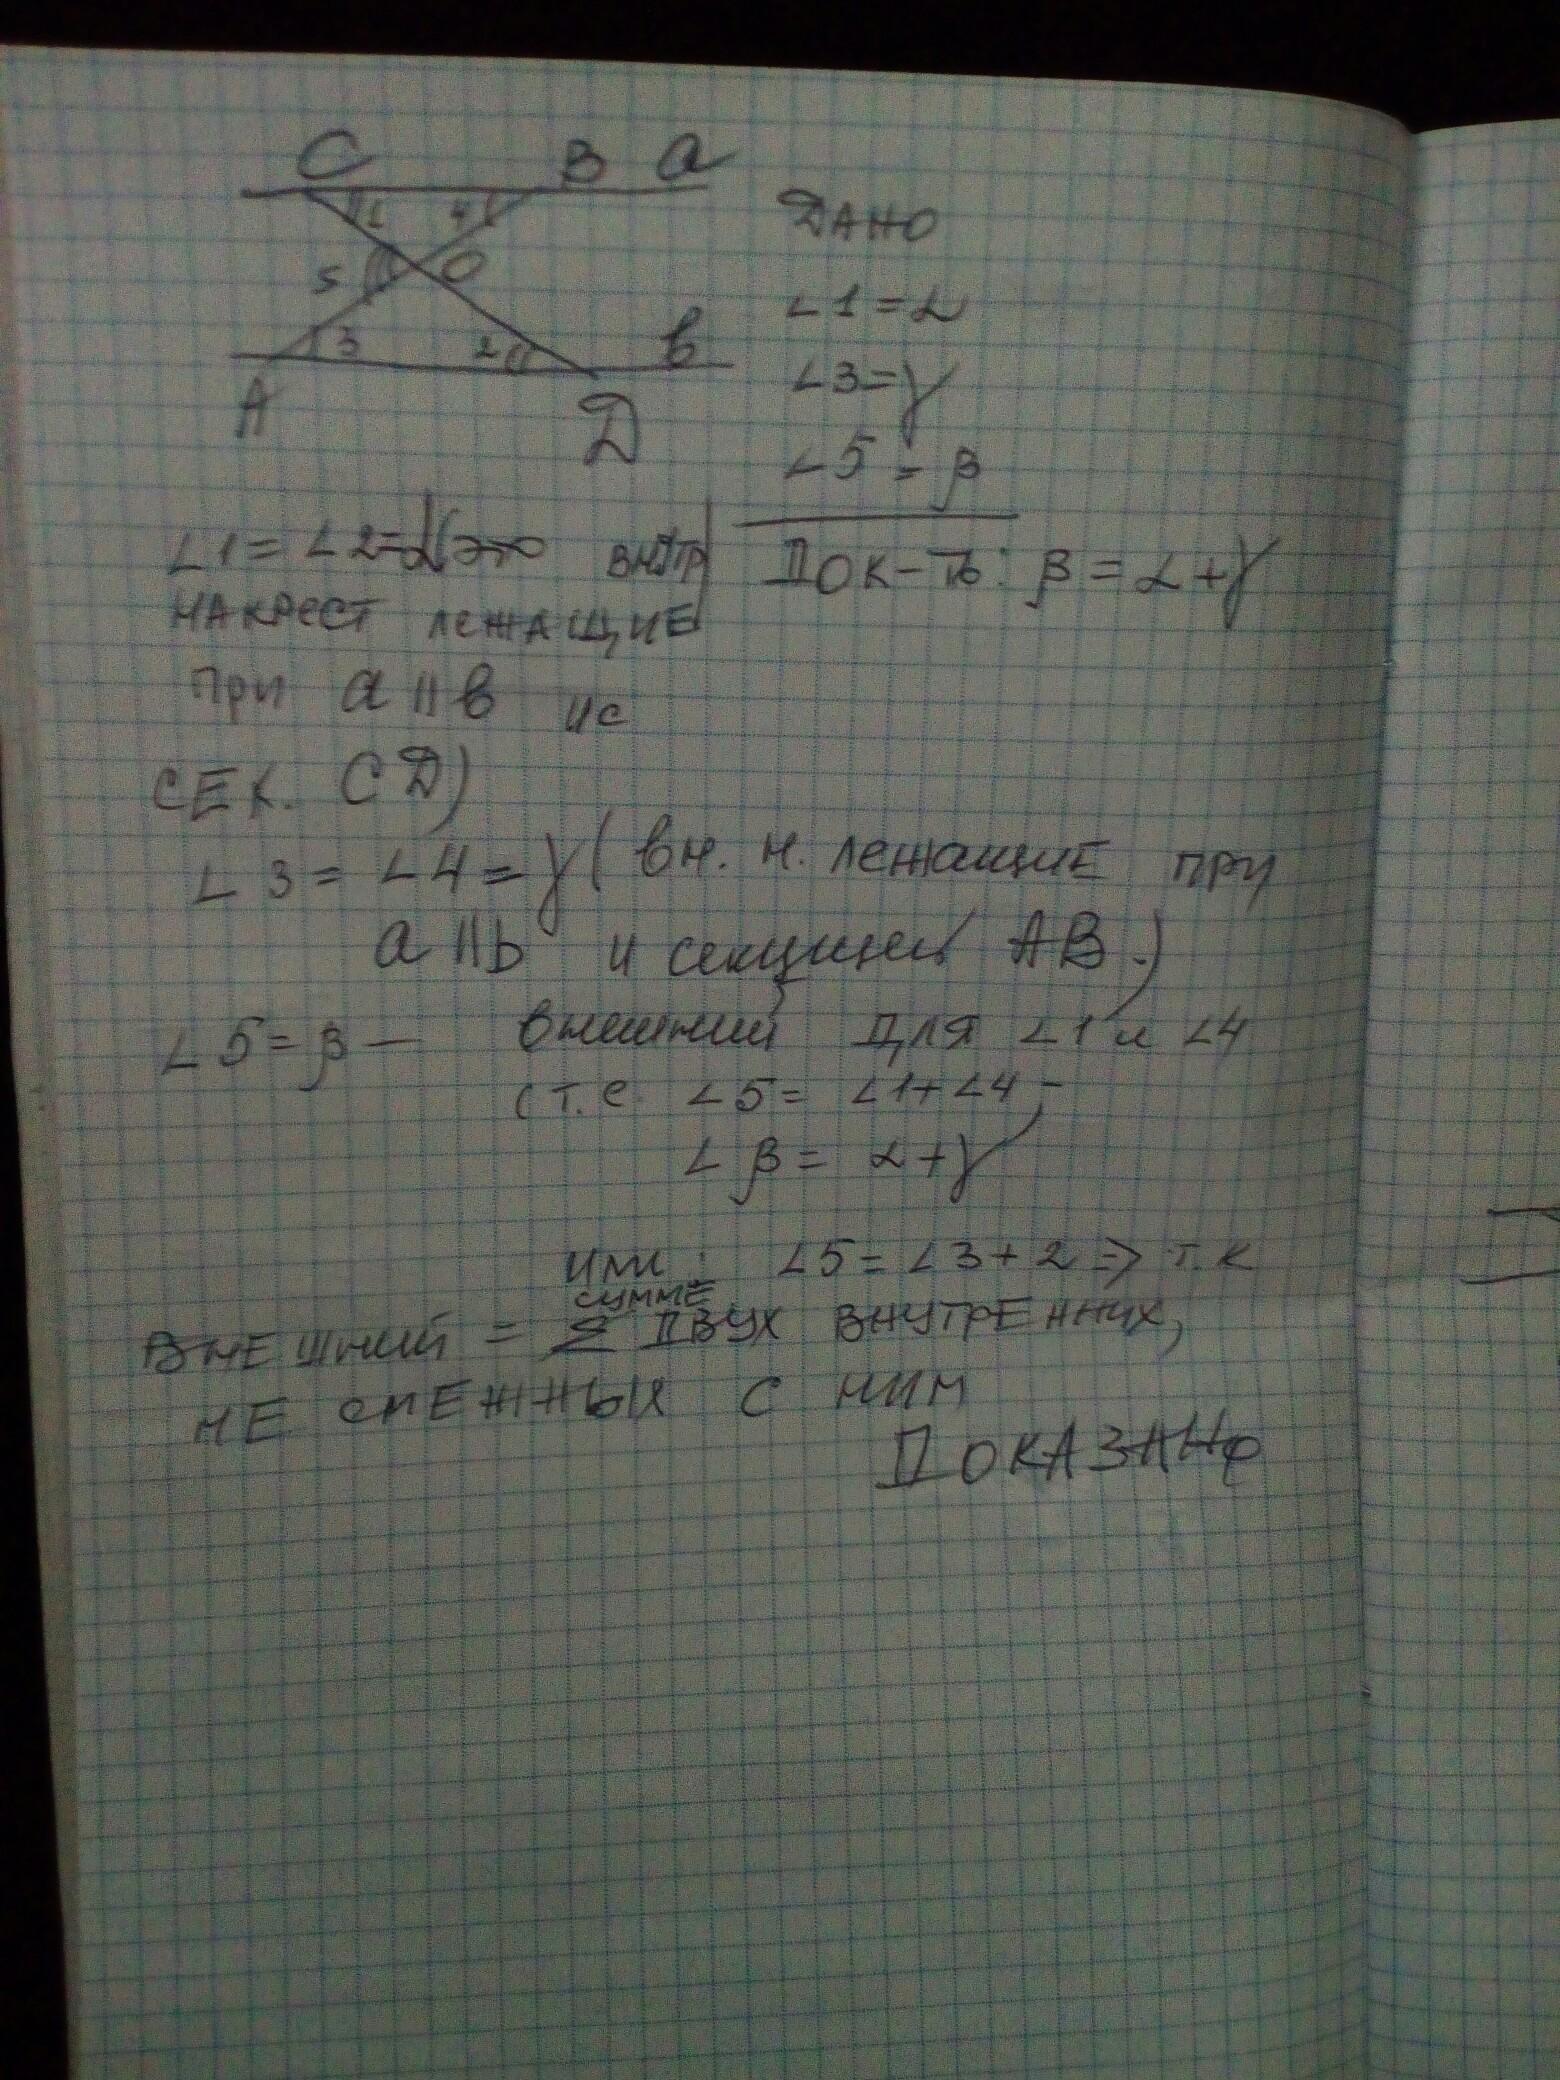 C B a
1 4
5 O
3 2 b
A Д
ДАНО
∠1 = α
∠3 = γ
∠5 = β
ДОК-ТЬ: β = α + γ
∠1 = ∠2 = α (это внутр
НАКРЕСТ ЛЕЖАЩИЕ
при a || b и с
СЕК. CД)
∠3 = ∠4 = γ (вн. н. лежащие при
a || b и секущей AB.)
∠5 = β — внешний для ∠1 и ∠4
(т.е. ∠5 = ∠1 + ∠4 -
∠β = α + γ
или: ∠5 = ∠3 + 2 => т.к
СУММЕ
ВНЕШНИЙ = ДВУХ ВНУТРЕННИХ,
НЕ СМЕЖНЫХ С НИМ
ДОКАЗАНО